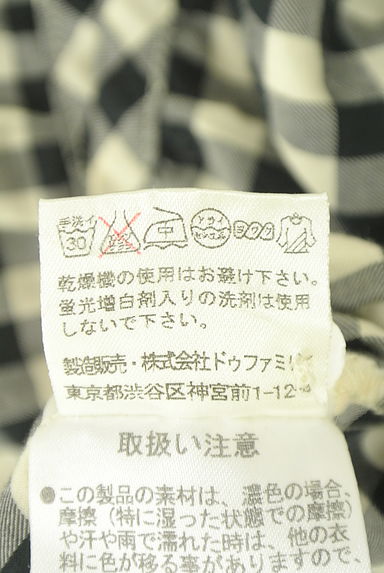 手洗イ
30
中
ドライ
乾燥機の使用はお避け下さい。
蛍光増白剤入りの洗剤は使用
しないで下さい。
製造販売・株式会社ドゥファミリ
東京都渋谷区神宮前1-12-
取扱い注意
●この製品の素材は、濃色の場合、
摩擦（特に湿った状態での摩擦）
や汗や雨で濡れた時は、他の衣
料に色が移る事がありますので、